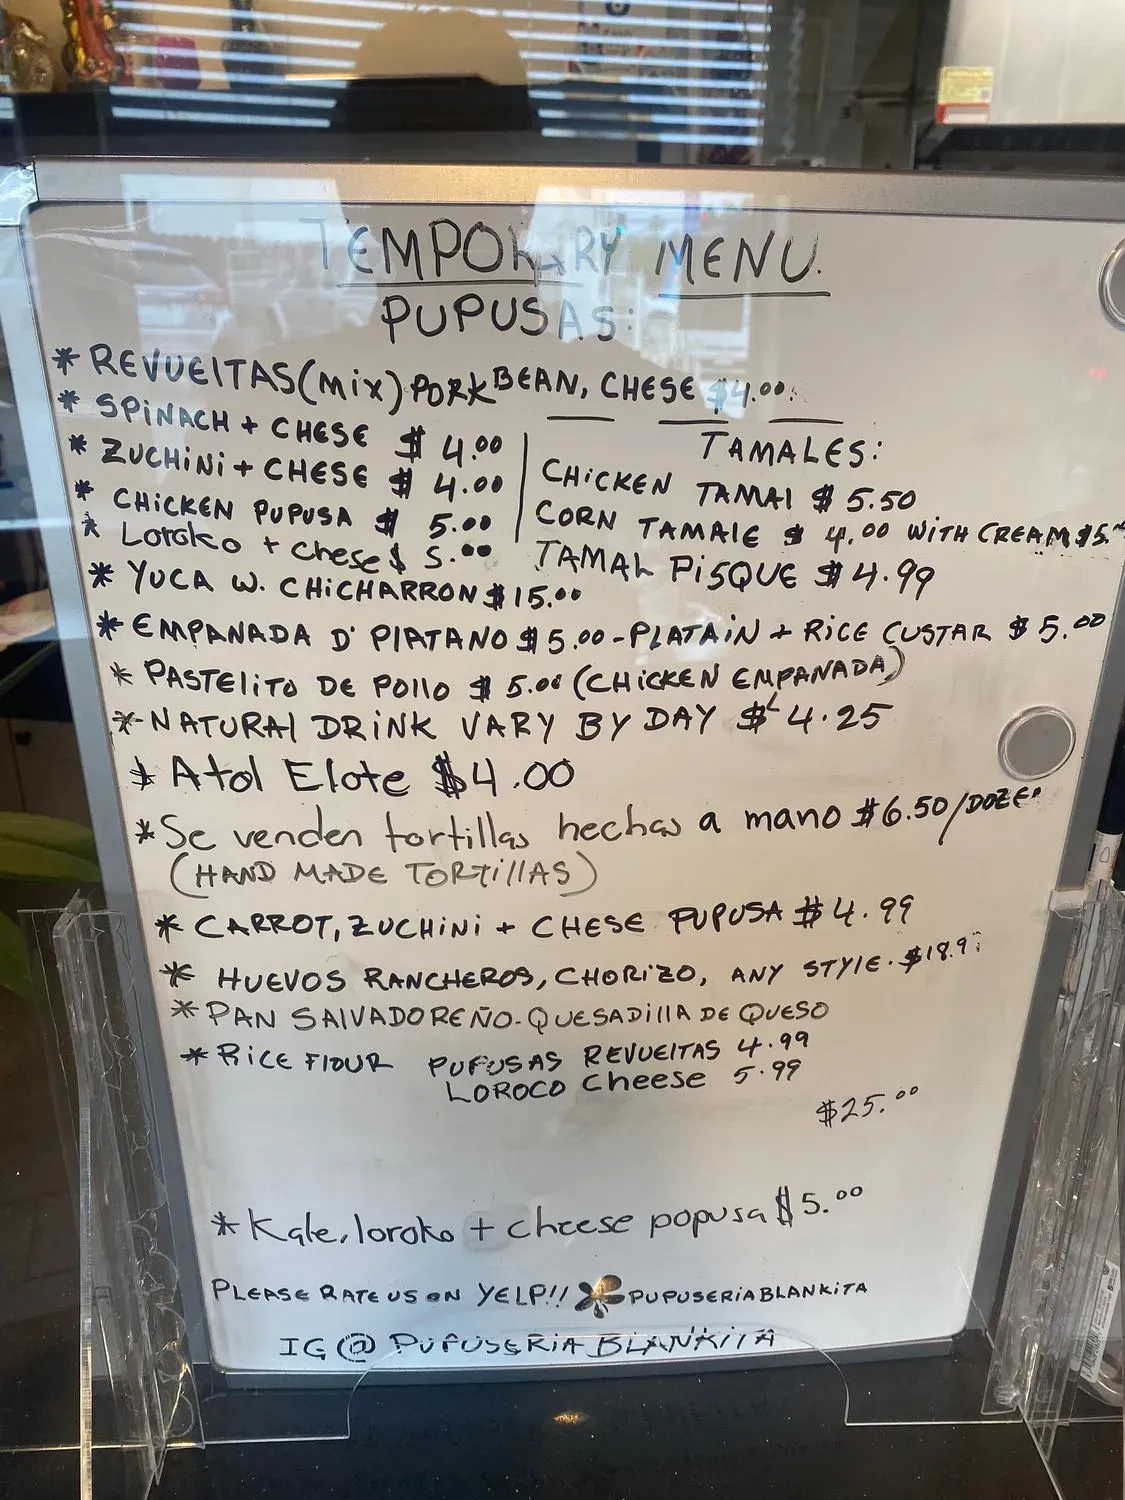 TEMPORARY MENU.
PUPUSAS:
* REVUEITAS (MIX) PORK BEAN, CHESE $4.00.
* SPINACH + CHESE $ 4.00
* ZUCHINI + CHESE $ 4.00
* CHICKEN PUPUSA $ 5.00
* Loroko + chese $ 5.00
TAMALES:
CHICKEN TAMAI $ 5.50
CORN TAMAIE $ 4.00 WITH CREAM $5.
TAMAL PISQUE $4.99
* YUCA W. CHICHARRON $15.00
* EMPANADA D' PIATANO $5.00 - PLATAIN + RICE CUSTAR $ 5.00
* PASTELITO DE POIIO $ 5.00 (CHICKEN EMPANADA)
* NATURAI DRINK VARY BY DAY $ 4.25
* Atol Elote $4.00
* Se venden tortillas hechas a mano $6.50/DOZE
(HAND MADE TORTIIIAS)
* CARROT, ZUCHINI + CHESE PUPUSA $4.99
* HUEVOS RANCHEROS, CHORIZO, ANY STYIE. $18.9
* PAN SAIVADOREÑO - QUESADIIIA DE QUESO
* RICE FIOUR PUPUSAS REVUEITAS 4.99
LOROCO Cheese 5.99
$25.00
* Kale, loroko + cheese popusa $5.00
PLEASE RATE US ON YELP!! PUPUSERIABLANKITA
IG @ PUPUSERIABLANKITA